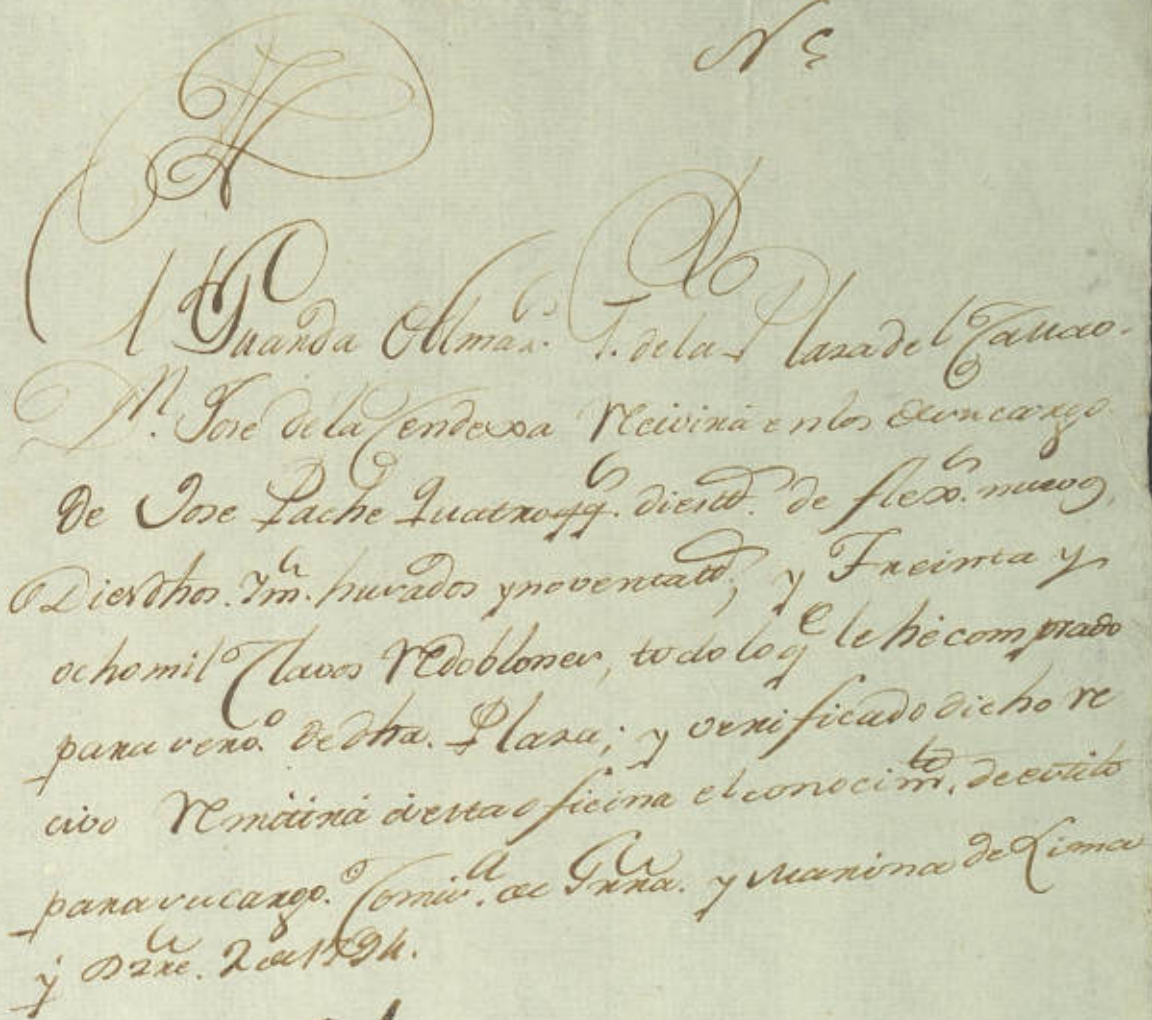 N 5
El Guarda Almaz.s G. de la Plaza del Callao
Dn. José de la Cendexa Recivirá en los de su cargo
de Jose Pache Quatro qqs. diez ll. de flexs. nuevos
Diez dhos. Ym. huzados y noventa ll; y Treinta y
ocho mil Clavos Redoblones, todo lo qe le hé comprado
para servo. de dha. Plaza; y verificado dicho re
civo Remitirá á esta oficina el conocimto. de estilo
para su cargo. Comisa. de Grra. y Marina de Lima
y Dzre. 2 de 1794.